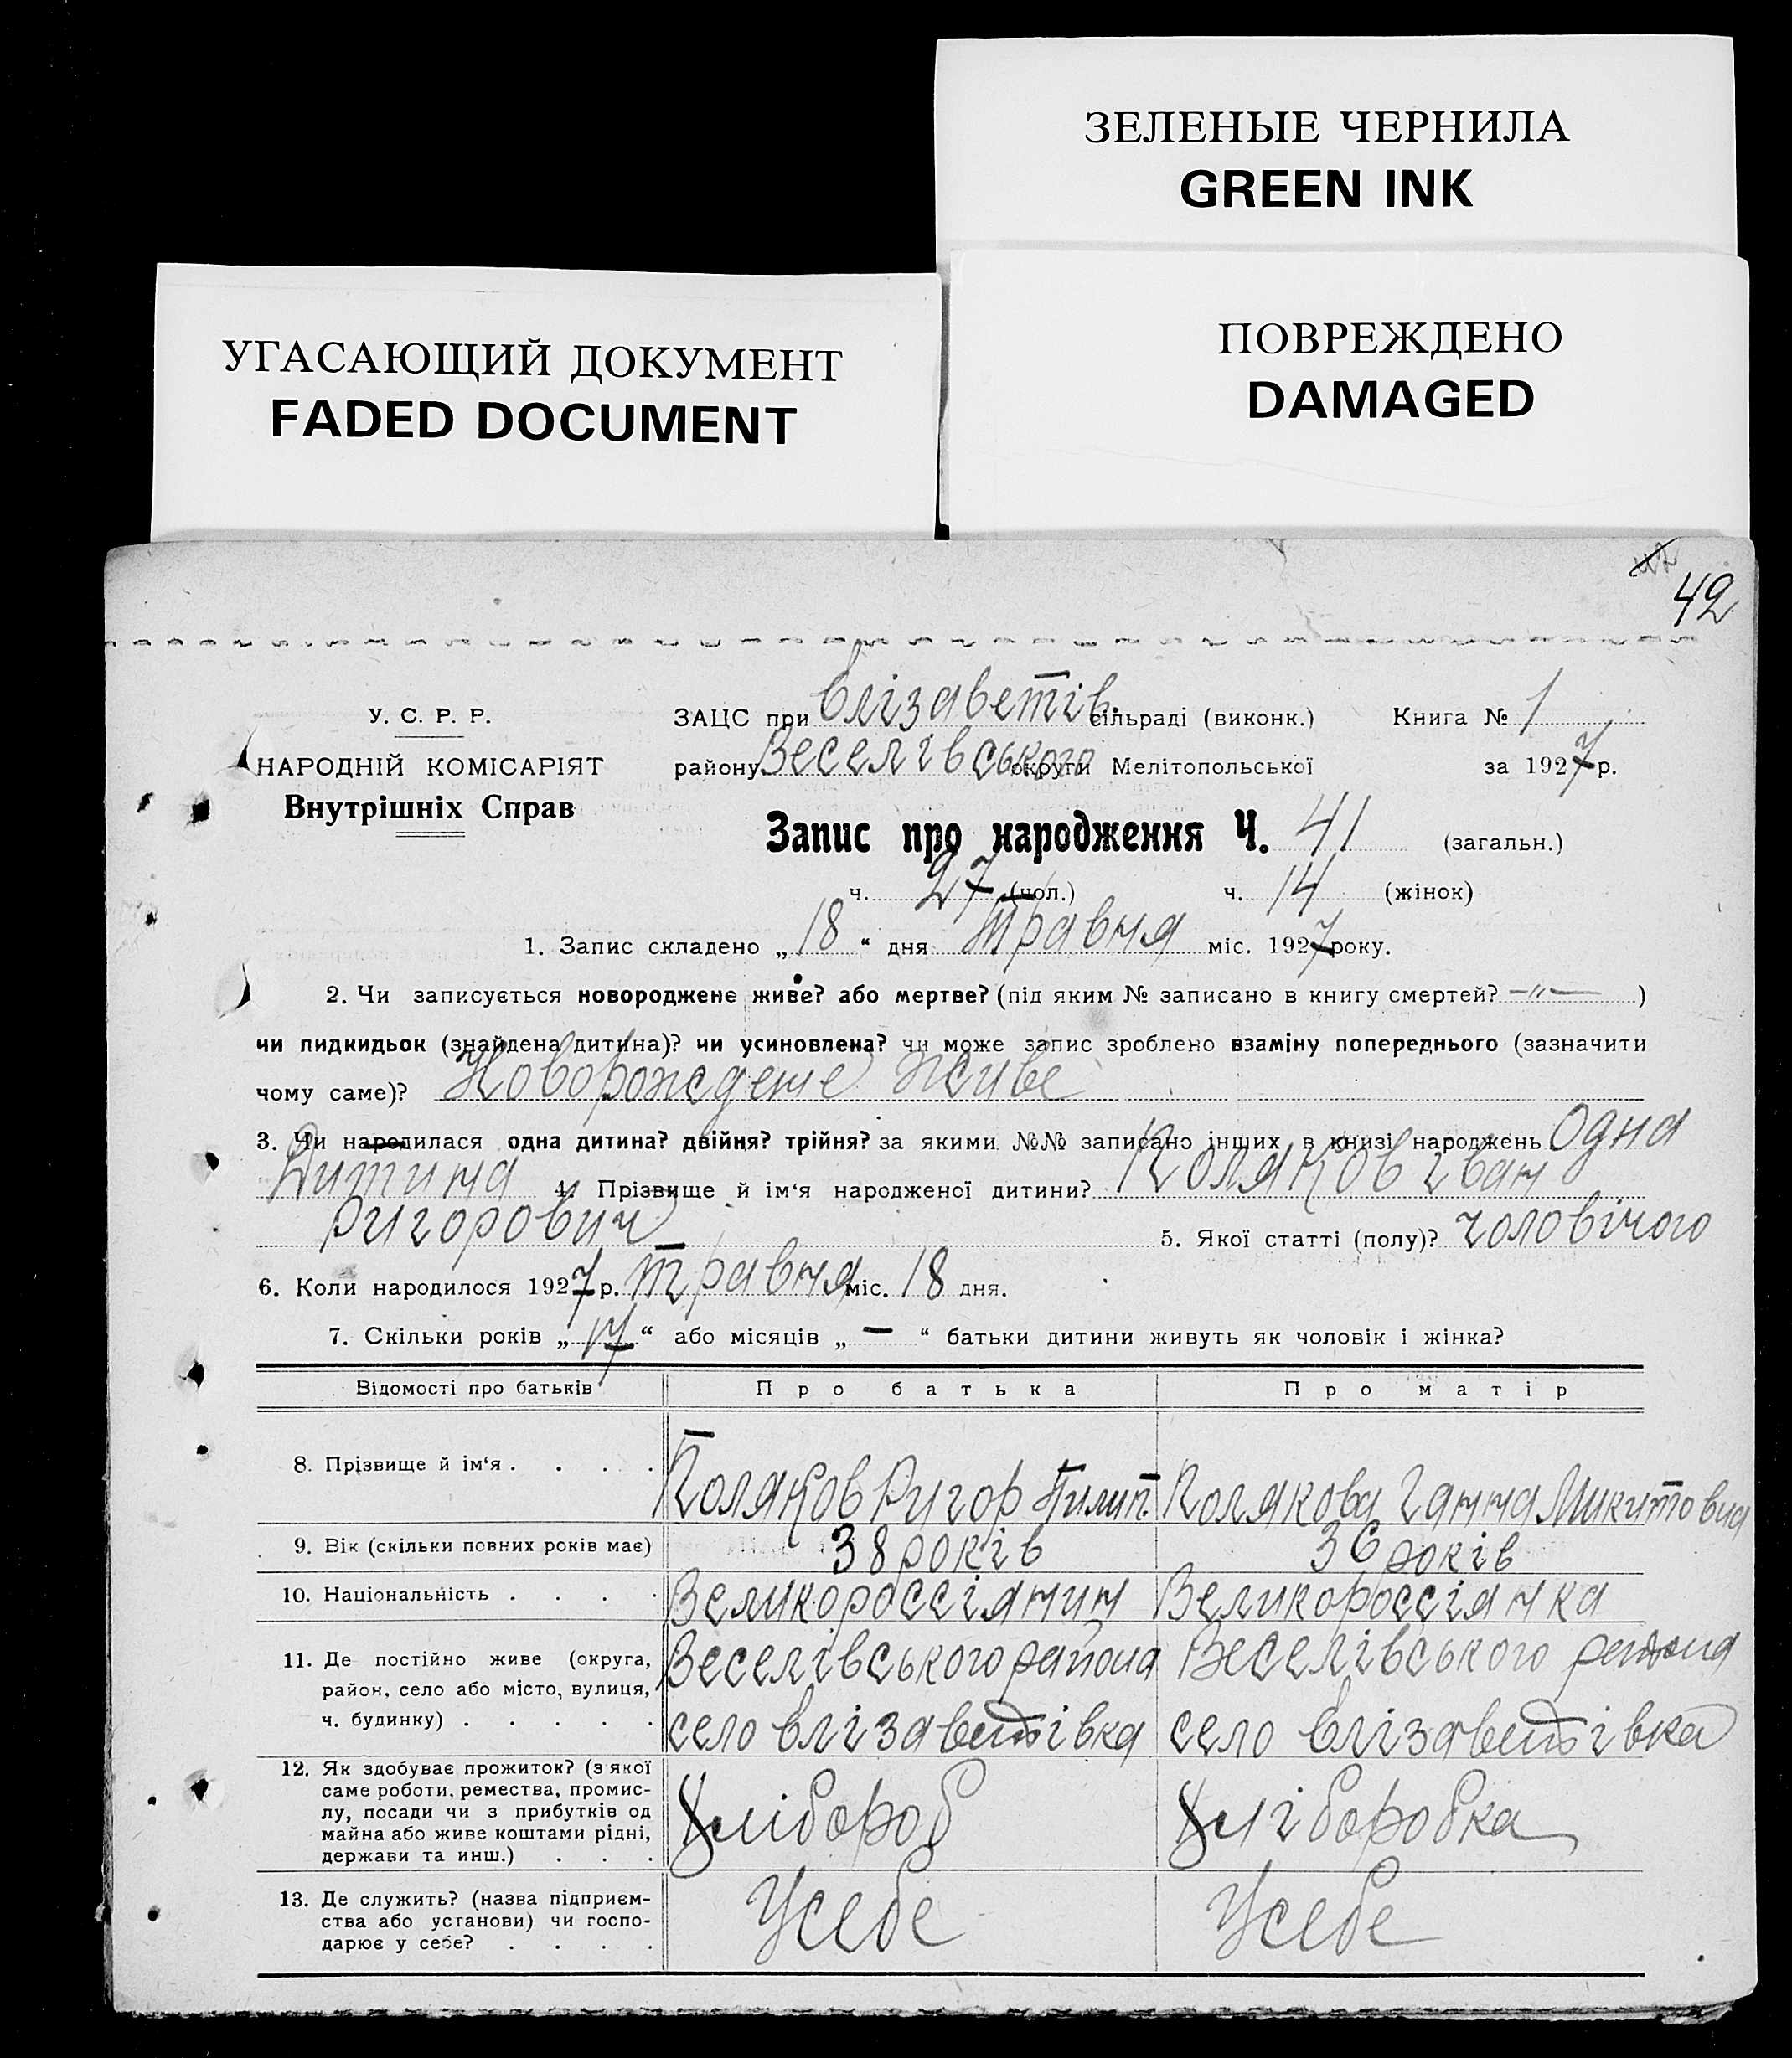 ЗЕЛЕНЫЕ ЧЕРНИЛА
GREEN INK
УГАСАЮЩИЙ ДОКУМЕНТ
FADED DOCUMENT
ПОВРЕЖДЕНО
DAMAGED
42
У. С. Р. Р.
НАРОДНІЙ КОМІСАРІЯТ
Внутрішніх Справ
ЗАЦС при Єлізаветів. сільраді (виконк.) Книга № 1
району Веселівського округи Мелітопольської за 1927 р.
Запис про народження Ч. 41 (загальн.)
ч. 27 (чол.) ч. 14 (жінок)
1. Запис складено „ 18 “ дня Травня міс. 1927 року.
2. Чи записується новороджене живе? або мертве? (під яким № записано в книгу смертей? —"— )
чи пидкидьок (знайдена дитина)? чи усиновлена? чи може запис зроблено взаміну попереднього (зазначити
чому саме)? Новорождене живе
3. Чи народилася одна дитина? двійня? трійня? за якими №№ записано інших в книзі народжень Одна
Дитина 4. Прізвище й ім‘я народженої дитини? Поляков Іван
Ригорович 5. Якої статті (полу)? чоловічого
6. Коли народилося 1927 р. травня міс. 18 дня.
7. Скільки років „ 17 “ або місяців „ — “ батьки дитини живуть як чоловік і жінка?
Відомості про батьків Про батька Про матір
8. Прізвище й ім‘я . . . . Поляков Ригор Пилип. Полякова Ганна Микитовна
9. Вік (скільки повних років має) 38 років 36 років
10. Національність . . . . Великороссіянин Великороссіянка
11. Де постійно живе (округа, Веселівського района Веселівського района
район, село або місто, вулиця,
ч. будинку) . . . . . село Єлізаветівка село Єлізаветівка
12. Як здобуває прожиток? (з якої
саме роботи, ремества, промис-
лу, посади чи з прибутків од Хлібороб Хліборобка
майна або живе коштами рідні,
держави та инш.) . . .
13. Де служить? (назва підприєм-
ства або установи) чи госпо- Усебе Усебе
дарює у себе? . . . .